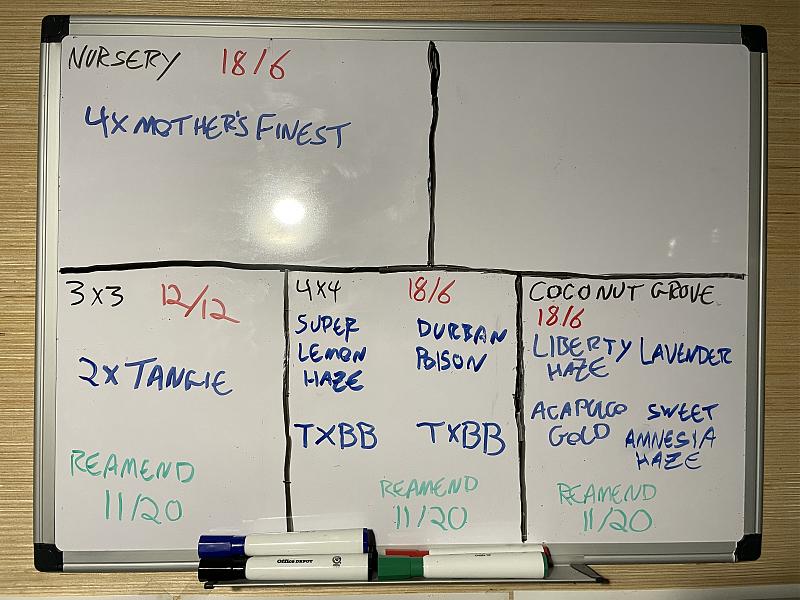 NURSERY 18/6
4X MOTHER'S FINEST
3X3 12/12
2X TANGIE
REAMEND
11/20
4X4 18/6
SUPER
LEMON
HAZE
DURBAN
POISON
TXBB TXBB
REAMEND
11/20
COCONUT GROVE
18/6
LIBERTY
HAZE
LAVENDER
ACAPULCO
GOLD
SWEET
AMNESIA
HAZE
REAMEND
11/20
Office DEPOT